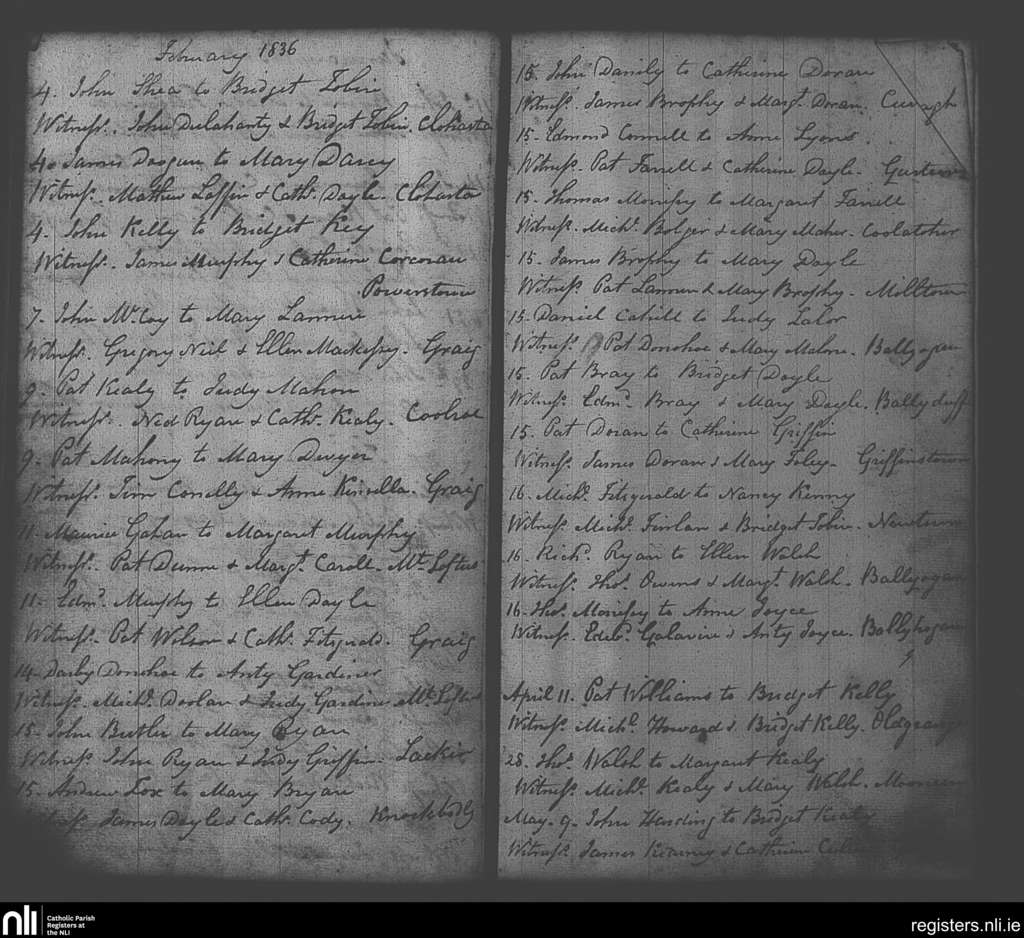 February 1836
4. John Shea to Bridget Tobin
Witness. John Delahanty & Bridget Tobin. Clohasta
4. James Doogan to Mary Darcy
Witness. Mathew Laffin & Cath. Doyle. Clohasta
4. John Kelly to Bridget Key
Witness. James Murphy & Catherine Corcoran
Powerstown
7. John McCoy to Mary Lannure
Witness. Gregory Neil & Ellen Mackessy. Graig
9. Pat Kealy to Judy Mahon
Witness. Ned Ryan & Cath. Kealy. Coolroe
9. Pat Mahony to Mary Dwyer
Witness. Tim Conelly & Anne Kinsella. Graig
11. Maurice Gahan to Margaret Murphy
Witness. Pat Dunne & Margt. Caroll. Mt. Loftus
11. Edmd. Murphy to Ellen Doyle
Witness. Pat Wilson & Cath. Fitzgerald. Graig
14. Darby Donohoe to Anty Gardiner
Witness. Michl. Doolan & Judy Gardiner Mt. Loftus
15. John Butler to Mary Ryan
Witness John Ryan & Judy Griffin. Lackin
15. Andrew Fox to Mary Bryan
James Doyle & Cath. Cody. Knockbodly
15. John Danily to Catherine Doran
Witness. James Brophy & Margt. Doran. Curragh
15. Edmond Connell to Anne Lyons.
Witness. Pat Farrell & Catherine Doyle.
15. Thomas Monissy to Margaret Farrell
Witness. Michl. Bolger & Mary Maher. Coolatoher
15. James Brophy to Mary Doyle
Witness. Pat Lannen & Mary Brophy. Milltown
15. Daniel Cahill to Judy Lalor
Witness. Pat Donohoe & Mary Mahon. Ballyogan
15. Pat Bray to Bridget Doyle
Witness. Edmd. Bray & Mary Doyle. Ballyduff
15. Pat Doran to Catherine Griffin
Witness. James Doran & Mary Foley. Griffinstown
16. Michl. Fitzgerald to Nancy Kenny
Witness. Michl. Finlan & Bridget Tobin. Newtown
16. Richd. Ryan to Ellen Walsh
Witness. Thos. Owens & Margt. Walsh. Ballyogan
16. Thos. Monissy to Anne Joyce
Witness. Edwd. Galavin & Anty Joyce. Ballyhogan
April 11. Pat Williams to Bridget Kelly
Witness. Michl. Howard & Bridget Kelly. Oldgrange
28. Thos. Walsh to Margaret Kealy
Witness. Michl. Kealy & Mary Walsh.
May. 9. John Harding to Bridget Kealy
Witness. James Kearney & Catherine
nli
Catholic Parish
Registers at
the NLI
registers.nli.ie